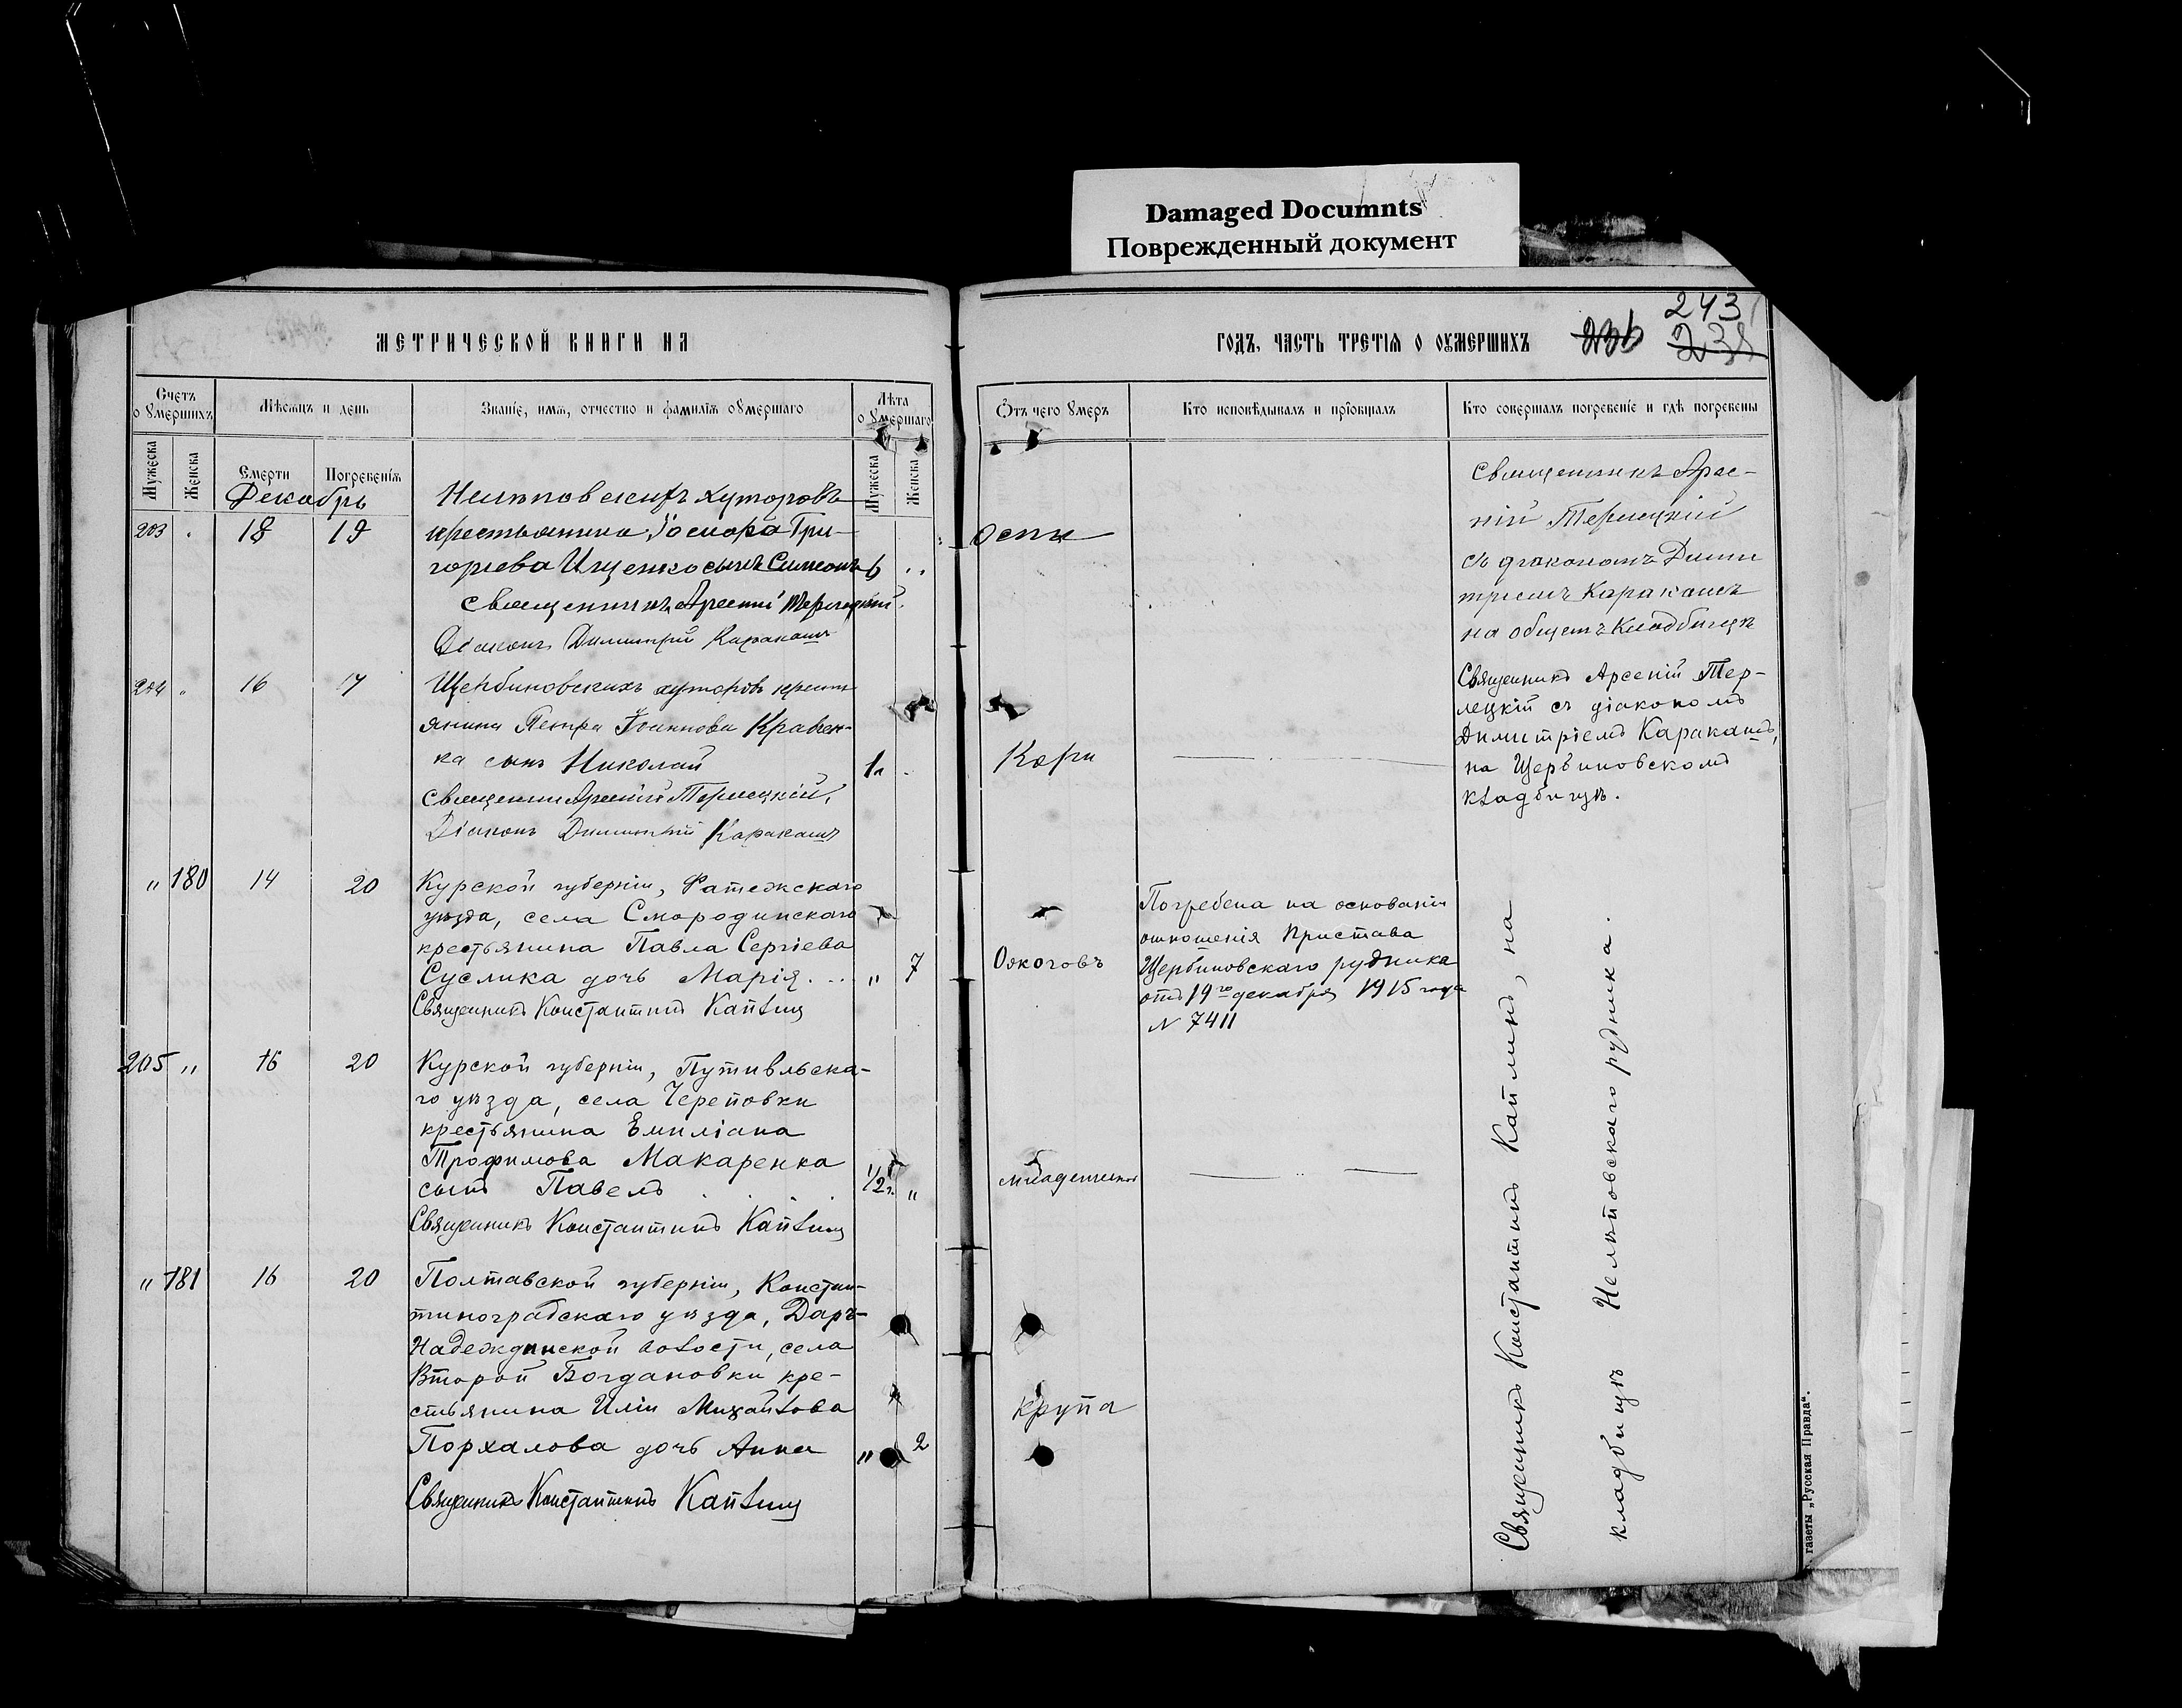 Damaged Documnts
Поврежденный документ
МЕТРИЧЕСКОЙ КНИГИ НА
ГОДЪ, ЧАСТЬ ТРЕТІЯ О ОУМЕРШИХЪ
236
243
238
Счетъ оумершихъ
Мѣсяцъ и день
Званіе, имя, отчество и фамилія оумершаго
Лѣта оумершаго
Мужеска
Женска
Смерти
Погребенія
Мужеска
Женска
Отъ чего умеръ
Кто исповѣдывалъ и пріобщалъ
Кто совершалъ погребеніе и гдѣ погребены
Декабрь
203
18
19
Нелѣповскихъ хуторовъ
крестьянина Гри-
горьева Ищенко сынъ Симеонъ
6
Священникъ Арсеній Терлецкій
Діаконъ Димитрій Каракашъ
Оспы
Священникъ Арсе-
ній Терлецкій
съ діакономъ Дими
тріемъ Каракашъ
на общемъ кладбищѣ
204
16
17
Щербиновскихъ хуторовъ крестъ
янина Петра Іоаннова Кравен-
ка сынъ Николай
1
Священник Арсеній Терлецкій,
Діаконъ Димитрій Каракашъ
Кори
Священникъ Арсеній Тер-
лецкій съ діакономъ
Димитріемъ Каракашъ,
на Щербиновскомъ
кладбищѣ.
"
180
14
20
Курской губерніи, Фатежскаго
уѣзда, села Смородинскаго
крестьянина Павла Сергіева
Суслика дочь Марія . . .
"
7
Священникъ Константинъ Каплинъ
Ожоговъ
Погребена на основаніи
отношенія Пристава
Щербиновскаго рудника
отъ 19го декабря 1915 года
N 7411
205
"
16
20
Курской губерніи, Путивльска-
го уѣзда, села Череповки
крестьянина Емиліана
Трофимова Макаренка
сынъ Павелъ . . . .
1/2 г.
"
Священникъ Константинъ Каплинъ
младенческ
"
181
16
20
Полтавской губерніи, Констан-
тиноградскаго уѣзда, Даръ-
Надеждинской волости, села
Второй Богдановки кре-
стьянина Иліи Михайлова
Порхалова дочь Анна
"
2
Священникъ Константинъ Каплинъ
крупа
Священникъ Константинъ Каплинъ, на
кладбищѣ Нелѣповскаго рудника.
газеты „Русская Правда“.